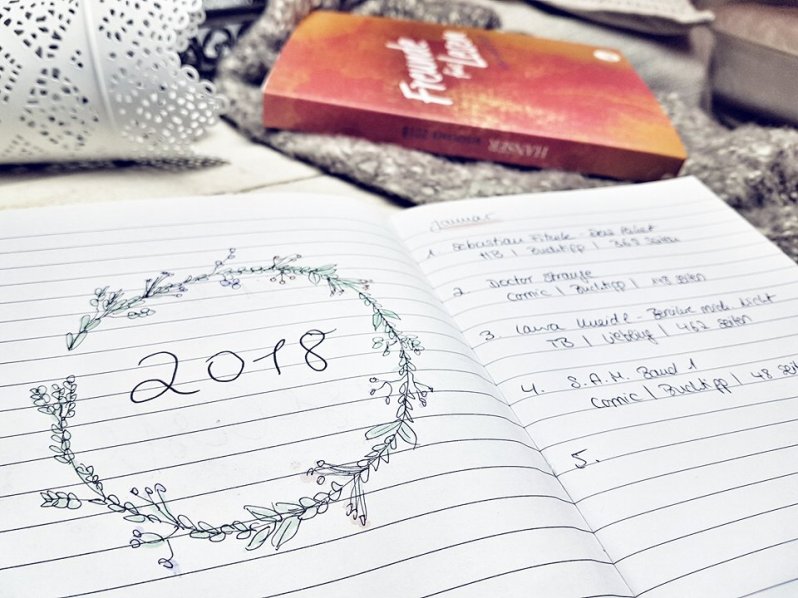 Freunde
fürs Lesen
HANSER
2018
2018
Januar
1. Sebastian Fitzek - Das Paket
HB | Buchtipp | 368 Seiten
2. Doctor Strange
Comic | Buchtipp | 148 Seiten
3. Laura Kneidl - Berühre mich nicht
TB | Liebling | 462 Seiten
4. S.A.M. Band 1
Comic | Buchtipp | 48 Seit
5.